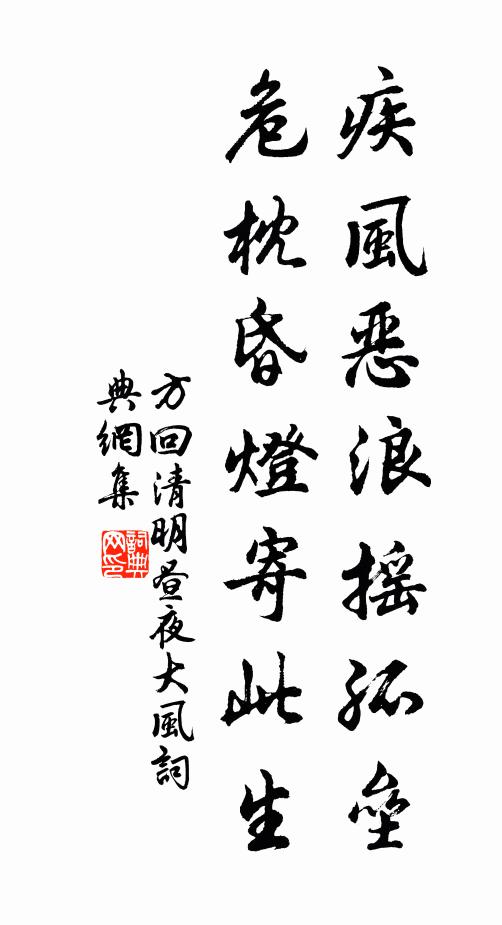 疾風惡浪搖孤壘
危枕昏燈寄此生
方回清明昼夜大風詞
典網集
詞典网印